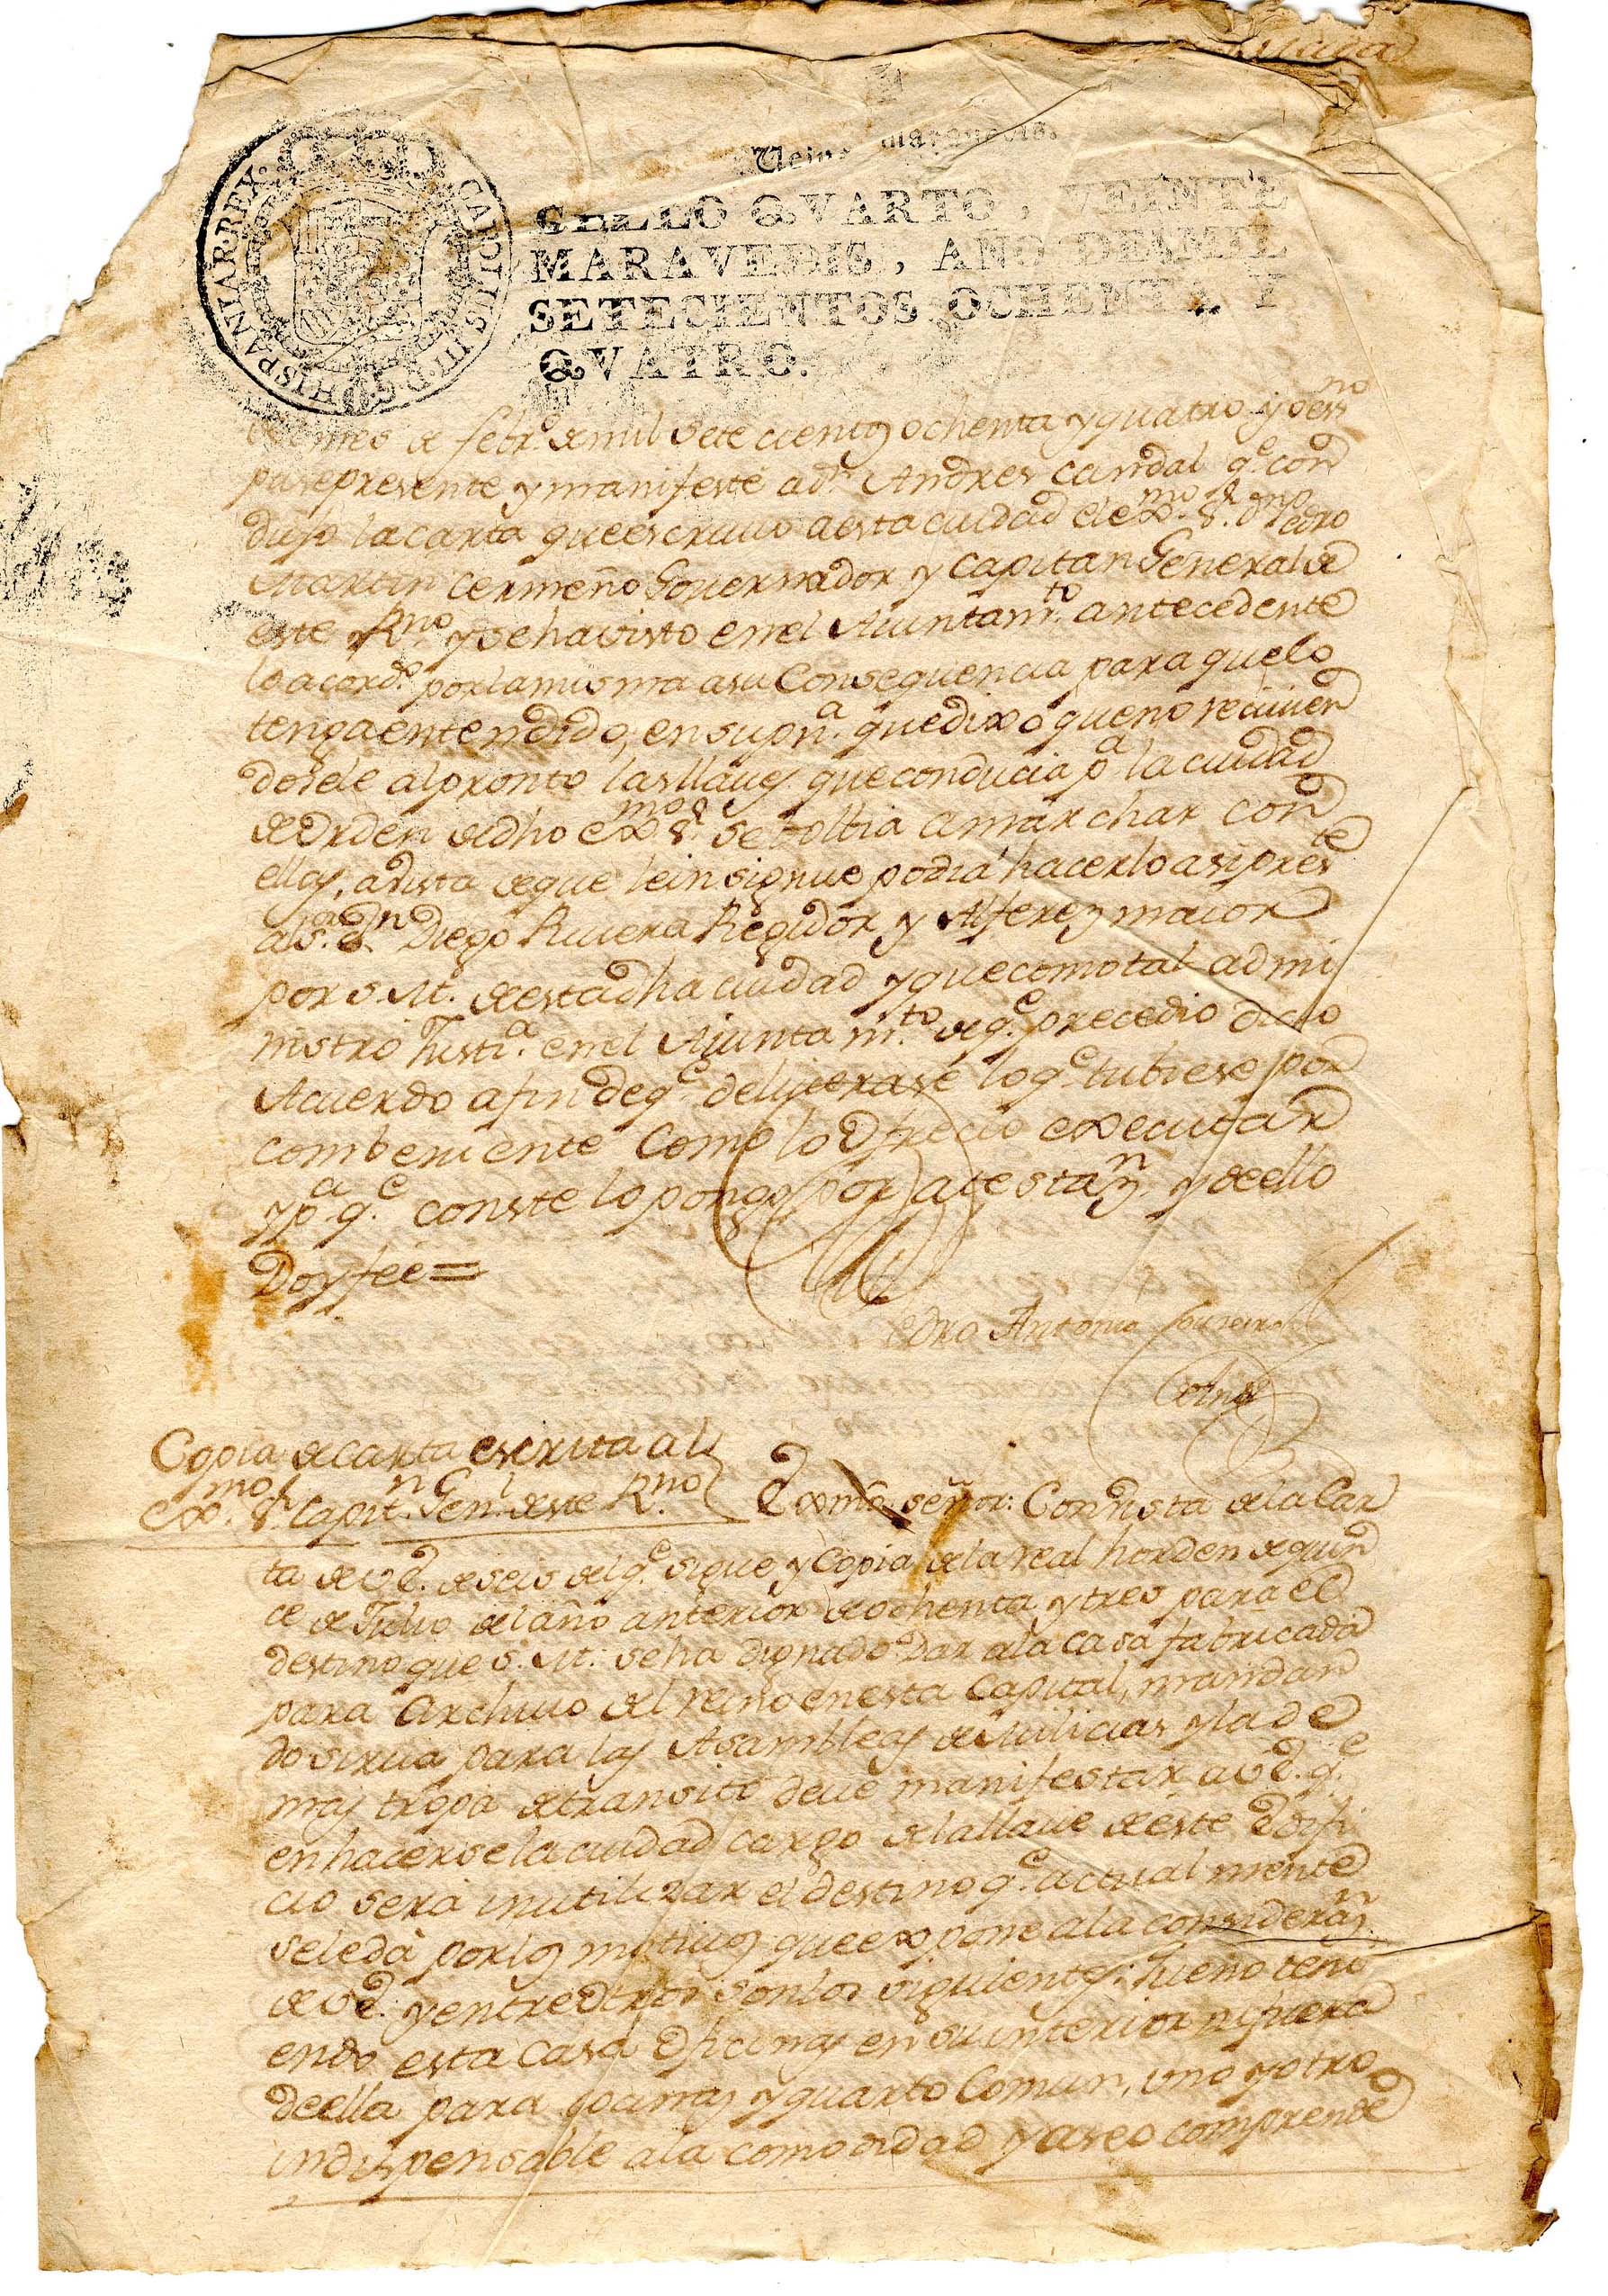 Veinte maravedis.
SELLO QVARTO, VEINTE
MARAVEDIS, AÑO DE MIL
SETECIENTOS OCHENTA Y
QVATRO.
CAROLUS III D G HISPANIAR REX
mes de febr.º de mil Sete cientos ochenta y quatro yo essno
puse presente y manifesté a dn Andres Candal q.e con
dujo la carta que escriuio a esta ciudad el exmo Sr. Dn Pedro
Martin Cermeño Gouernador y Capitan General de
este Rno y se ha visto en el Aiuntam.to antecedente
lo acord.º por la misma a su Consequencia para que lo
tenga entendido, en su pn.a que dixo que no reciuien
dosele al pronto las llaues que conducia p.a la ciudad
de orden de dho exmo Sr. se bolbia a marchar con
ellas, a vista de que le insignue podia hacerlo asi preste
al s.r Dn Diego Riuera Regidor y Alferez maior
por S. M. de esta dha ciudad y que como tal admi
nistró Justi.a en el Ajuntam.to de q.e precedio dicho
Acuerdo a fin de q.e deliuerase lo q.e tubiese por
combeniente Como lo ofrecio executar
y p.a q.e conste lo pongo por atestaz.n y de ello
Doy fee =
Pedro Antonio Loureiro
Copia de carta escrita al
exmo Sr. Capit.n Gen.l de este R.no
Exmo señor: Con vista de la Car
ta de V.E. de seis del q.e sigue y Copia de la real horden de quin
ce de Julio del año anterior de ochenta y tres para el
destino que S. M. se ha dignado Dar a la casa fabricada
para Archiuo del reino en esta Capital, mandan
do sirua para las Asambleas de Milicias y la de
mas tropa de transito deue manifestar a V.E. q.e
en hacerse la ciudad cargo de la llaue de este Edifi
cio será inutilizar el destino q.e actual mente
se le dá por los motiuos que expone a la consideraz.n
de V.E. y entre otros son los siguientes: Que no teni
endo esta casa oficinas en su interior ni fuera
de ella para Cocinas y quarto Comun, uno y otro
indispensable a la comodidad y aseo comprende